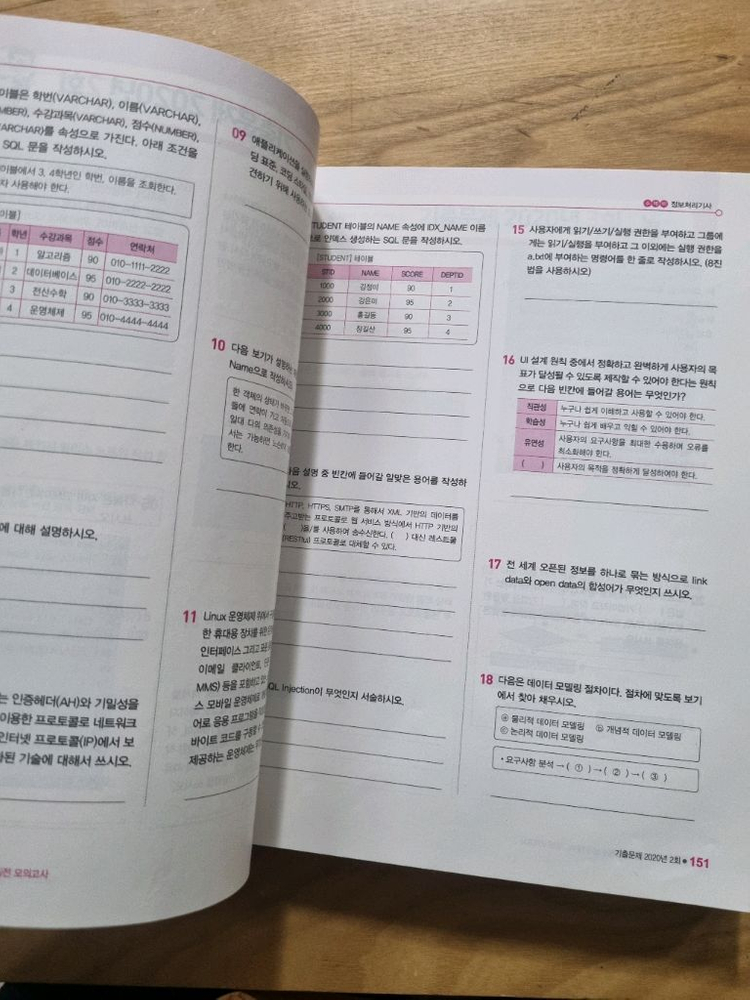 이블은 학번(VARCHAR), 이름(VARCHAR),
MBER), 수강과목(VARCHAR), 점수(NUMBER),
ARCHAR)를 속성으로 가진다. 아래 조건을
SQL 문을 작성하시오.
이블에서 3, 4학년인 학번, 이름을 조회한다.
자 사용해야 한다.
이블]
학년 수강과목 점수 연락처
1 알고리즘 90 010-1111-2222
2 데이터베이스 95 010-2222-2222
3 전산수학 90 010-3333-3333
4 운영체제 95 010-4444-4444
에 대해 설명하시오.
는 인증헤더(AH)와 기밀성을
이용한 프로토콜로 네트워크
인터넷 프로토콜(IP)에서 보
된 기술에 대해서 쓰시오.
전 모의고사
09 애플리케이션을
딩 표준, 코딩
견하기 위해 사용하
10 다음 보기가 설명하
Name으로 작성하시
한 객체의 상태가
들에 연락이 가고
일대 다의 의존성을
서는 가능하면
한다.
11 Linux 운영체제 위에서
한 휴대용 장치를 위한
인터페이스 그리고
이메일 클라이언트,
MMS) 등을 포함하고
스 모바일 운영체제로
어로 응용 프로그램을
바이트 코드를 구동할
제공하는 운영체제는
수제비 정보처리기사
STUDENT 테이블의 NAME 속성에 IDX_NAME 이름
으로 인덱스 생성하는 SQL 문을 작성하시오.
[STUDENT] 테이블
STID NAME SCORE DEPTID
1000 김정미 90 1
2000 강은미 95 2
3000 홍길동 90 3
4000 장길산 95 4
음 설명 중 빈칸에 들어갈 알맞은 용어를 작성하
시오.
HTTP, HTTPS, SMTP를 통해서 XML 기반의 데이터를
주고받는 프로토콜로 웹 서비스 방식에서 HTTP 기반의
( )을/를 사용하여 송수신한다. ( ) 대신 레스트풀
(RESTful) 프로토콜로 대체할 수 있다.
QL Injection이 무엇인지 서술하시오.
15 사용자에게 읽기/쓰기/실행 권한을 부여하고 그룹에
게는 읽기/실행을 부여하고 그 이외에는 실행 권한을
a.txt에 부여하는 명령어를 한 줄로 작성하시오. (8진
법을 사용하시오)
16 UI 설계 원칙 중에서 정확하고 완벽하게 사용자의 목
표가 달성될 수 있도록 제작할 수 있어야 한다는 원칙
으로 다음 빈칸에 들어갈 용어는 무엇인가?
직관성 누구나 쉽게 이해하고 사용할 수 있어야 한다.
학습성 누구나 쉽게 배우고 익힐 수 있어야 한다.
유연성 사용자의 요구사항을 최대한 수용하며 오류를
최소화해야 한다.
( ) 사용자의 목적을 정확하게 달성하여야 한다.
17 전 세계 오픈된 정보를 하나로 묶는 방식으로 link
data와 open data의 합성어가 무엇인지 쓰시오.
18 다음은 데이터 모델링 절차이다. 절차에 맞도록 보기
에서 찾아 채우시오.
ⓐ 물리적 데이터 모델링 ⓑ 개념적 데이터 모델링
ⓒ 논리적 데이터 모델링
• 요구사항 분석 → ( ① ) → ( ② ) → ( ③ )
기출문제 2020년 2회 • 151